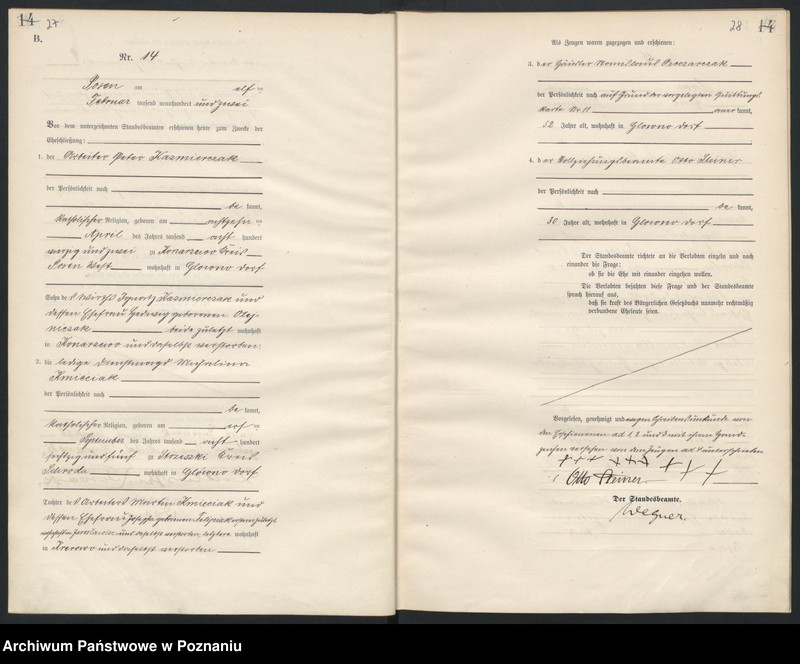 14 27
B.
Nr. 14
Posen am elf ten
Februar tausend neunhundert und zwei
Vor dem unterzeichneten Standesbeamten erschienen heute zum Zwecke der
Eheschließung:
1. der Arbeiter Peter Kazmierczak
der Persönlichkeit nach
be kannt,
katholischer Religion, geboren am achtzehn ten
April des Jahres tausend acht hundert
vierzig und zwei zu Konarzewo Kreis
Posen West wohnhaft in Glowno Dorf
Sohn des Wirths Ignatz Kazmierczak und
dessen Ehefrau Hedwig geborenen Olej-
niczak beide zuletzt wohnhaft
in Konarzewo und daselbst verstorben.
2. die ledige Dienstmagd Michalina
Kmieciak
der Persönlichkeit nach
be kannt,
katholischer Religion, geboren am elf ten
September des Jahres tausend acht hundert
sechzig und fünf zu Strzeszki Kreis
Schroda wohnhaft in Glowno Dorf
Tochter des Arbeiters Martin Kmieciak und
dessen Ehefrau Josepha geborenen ersterer zuletzt
wohnhaft in und daselbst verstorben, letztere wohnhaft
in und daselbst verstorben
28 14
Als Zeugen waren zugezogen und erschienen:
3. der Häusler
der Persönlichkeit nach auf Grund der vorgelegten Quittungs-
karte Nr 11 aner kannt,
52 Jahre alt, wohnhaft in Glowno Dorf
4. der Vollziehungsbeamte Otto Steiner
der Persönlichkeit nach
be kannt,
30 Jahre alt, wohnhaft in Glowno Dorf
Der Standesbeamte richtete an die Verlobten einzeln und nach
einander die Frage:
ob sie die Ehe mit einander eingehen wollen.
Die Verlobten bejahten diese Frage und der Standesbeamte
sprach hierauf aus,
daß sie kraft des Bürgerlichen Gesetzbuchs nunmehr rechtmäßig
verbundene Eheleute seien.
Vorgelesen, genehmigt und wegen Schreibensunkunde von
den Erschienenen ad 1, 2 und 3 mit ihren Hand-
zeichen versehen von dem Zeugen ad 4 unterschrieben
+++ +++ +++
Otto Steiner.
Der Standesbeamte.
Wegner.
Archiwum Państwowe w Poznaniu